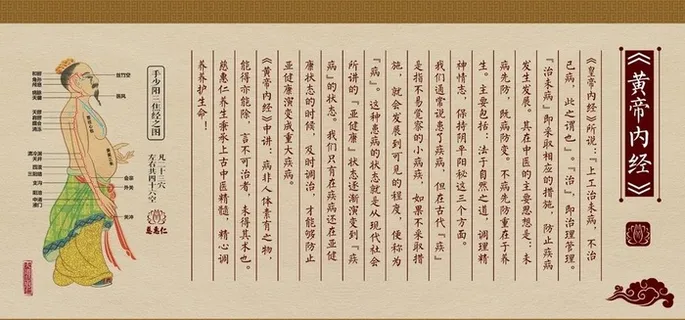 《黄帝内经》
《皇帝内经》所说：“上工治未病，不治
已病，此之谓也”。“治”，即治理管理。
“治未病”即采取相应的措施，防止疾病
发生发展。其在中医的主要思想是：未
病先防，既病防变。不病先防重在于养
生。主要包括：法于自然之道，调理精
神情志，保持阴平阳秘这三个方面。
我们通常说患了疾病，但在古代「疾」
是指不易觉察的小病疾，如果不采取措
施，就会发展到可见的程度，便称为
「病」。这种患病的状态就是从现代社会
所讲的「亚健康」状态逐渐演变到「疾
病」的状态。我们只有在疾病还在亚健
康状态的时候，及时调治，才能够防止
亚健康演变成重大疾病。
《黄帝内经》中讲：病非人体素有之物，
能得亦能除，言不可治者，未得其术也。
慈惠仁养生秉承上古中医精髓，精心调
养养护生命！
手少阳三焦经之图
凡二十三穴
左右共四十六穴
慈惠仁
丝竹空
翳风
会宗
外关
关冲
和髎
角孙
天牖
天髎
清冷渊
天井
四渎
三阳络
支沟
阳池
中渚
液门